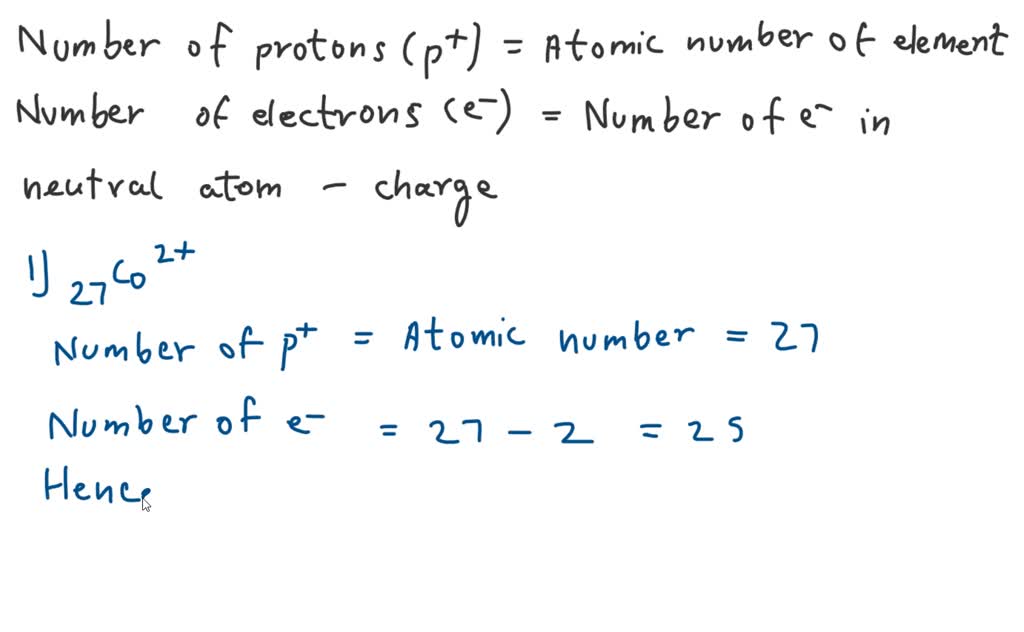 Number of protons (p⁺) = Atomic number of element
Number of electrons (e⁻) = Number of e⁻ in
neutral atom – charge
1) ₂₇Co²⁺
Number of p⁺ = Atomic number = 27
Number of e⁻ = 27 – 2 = 25
Hence